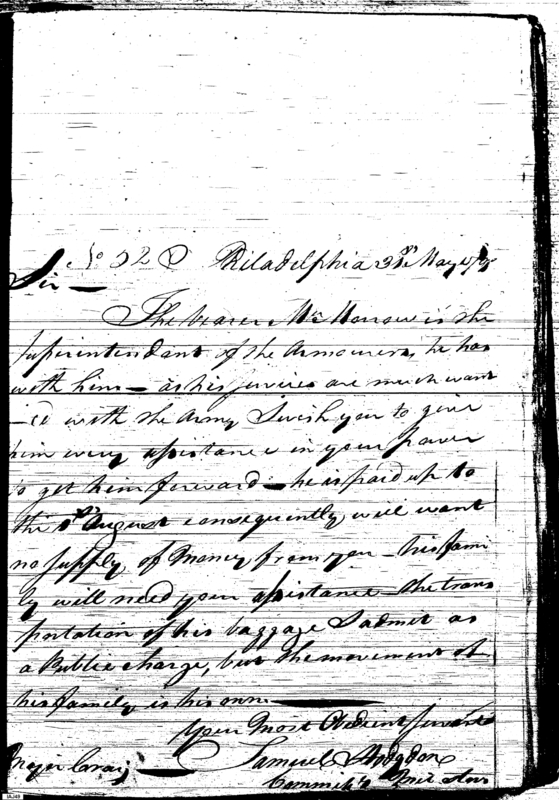 No 52 Philadelphia 31st May 179
Sir —
The bearer Mr Morrow is the
Superintendant of the Armourers, he has
with him — as his services are much want
-ed with the Army I wish you to give
him every assistance in your power
to get him forward — he is paid up to
the 1st August consequently will want
no supply of Money from you — his fami
ly will need your assistance — the trans
portation of his baggage I admit as
a Public charge, but the movement of
his family is his own —
Your Most Obedient Servant
Samuel Hodgdon
Major Craig —